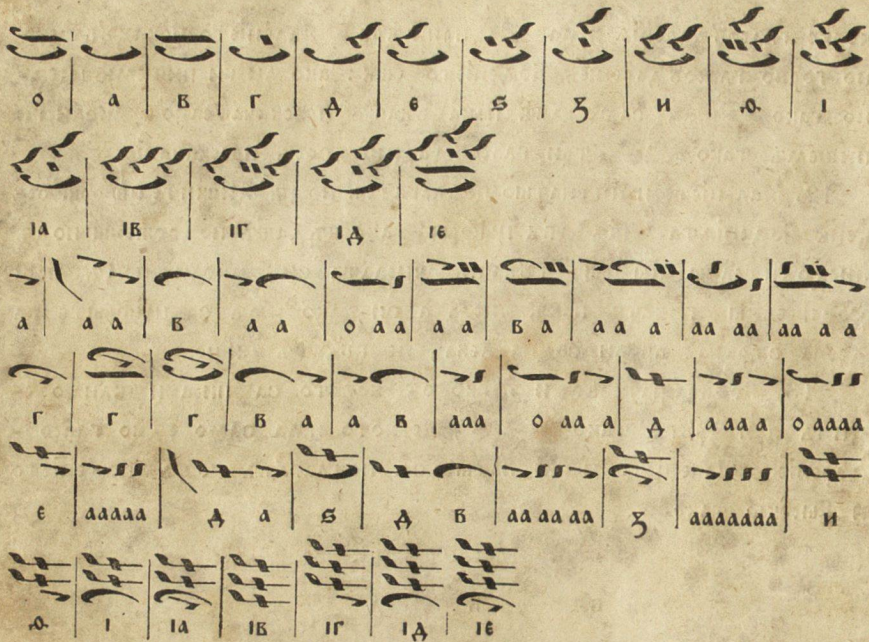 о а в г д є ѕ з и ѳ і
іа ів іг ід іє
а а а в а а о аа а а в а аа а аа аа аа а а
г г г в а а в ааа о аа а д а аа а о аааа
є ааааа д а ѕ д в аа аа аа з ааааааа и
ѳ і іа ів іг ід іє